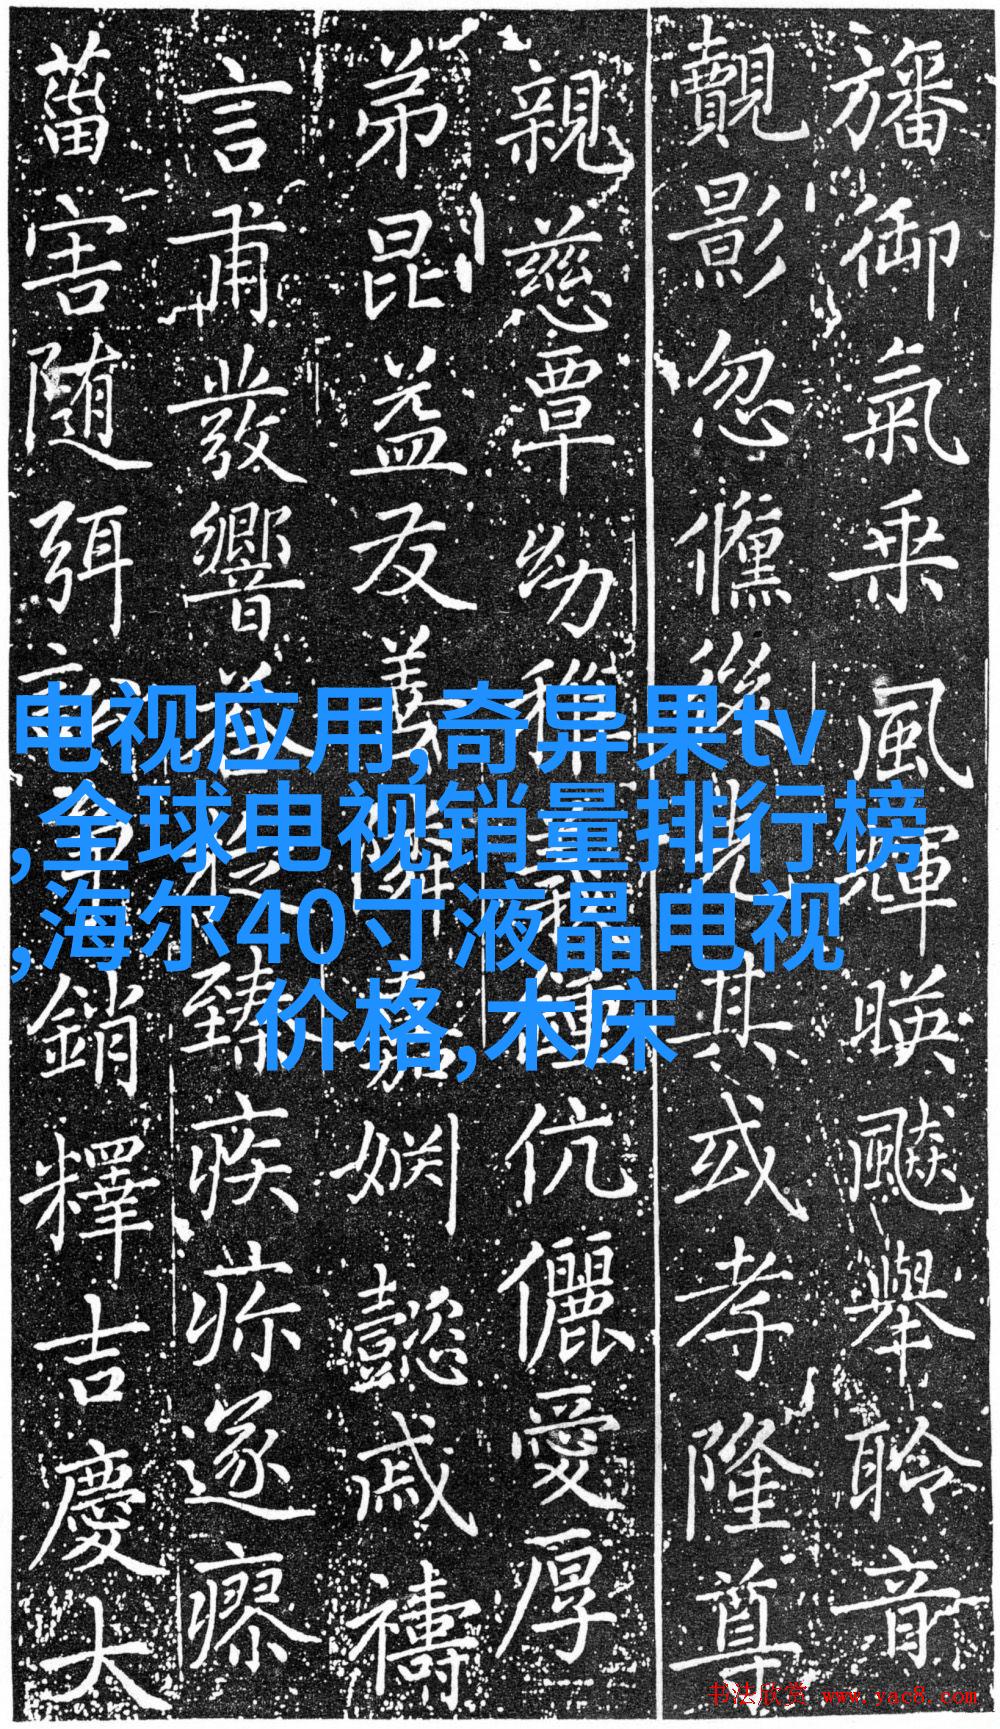 旛御氣乘風輝暎飈舉聆音
覿影忽後其或孝隆尊
親慈覃幼稚種伉儷愛厚
弟昆益友義隣嘉姻懿戚禱
言甫發響臻疾疹遂瘳
菑害随弭銷釋吉慶大
电视应用,奇异果tv
,全球电视销量排行榜
,海尔40寸液晶电视
价格,木床
书法欣赏 www.yac8.com